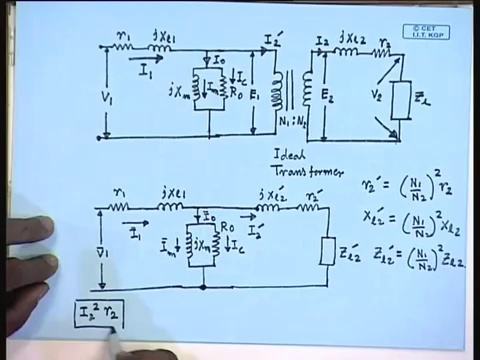 © CET
I.I.T. KGP
r₁ jxₗ₁ I₂′ I₂ jxₗ₂ r₂
I₁ I₀
V₁ jxₘ Iₘ I_c R₀ E₁ E₂ V₂ Z̄ₗ
N₁ : N₂
Ideal
Transformer
r₁ jxₗ₁ jxₗ₂′ r₂′
Ī₁ Ī₀ R₀ I₂′
V̄₁ Īₘ jxₘ I_c Z̄ₗ₂′
r₂′ = (N₁/N₂)² r₂
xₗ₂′ = (N₁/N₂)² xₗ₂
Z̄ₗ₂′ = (N₁/N₂)² Z̄ₗ₂
I₂² r₂